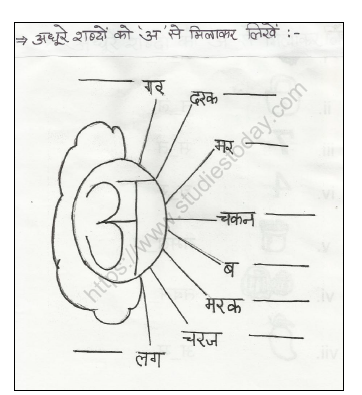 ⇒ अधूरे शब्दों को 'अ' से मिलाकर लिखें :-
____ गर
दरक ____
मर ____
अ
चकन ____
ब ____
मरक ____
चरज ____
____ लग
https://www.studiestoday.com